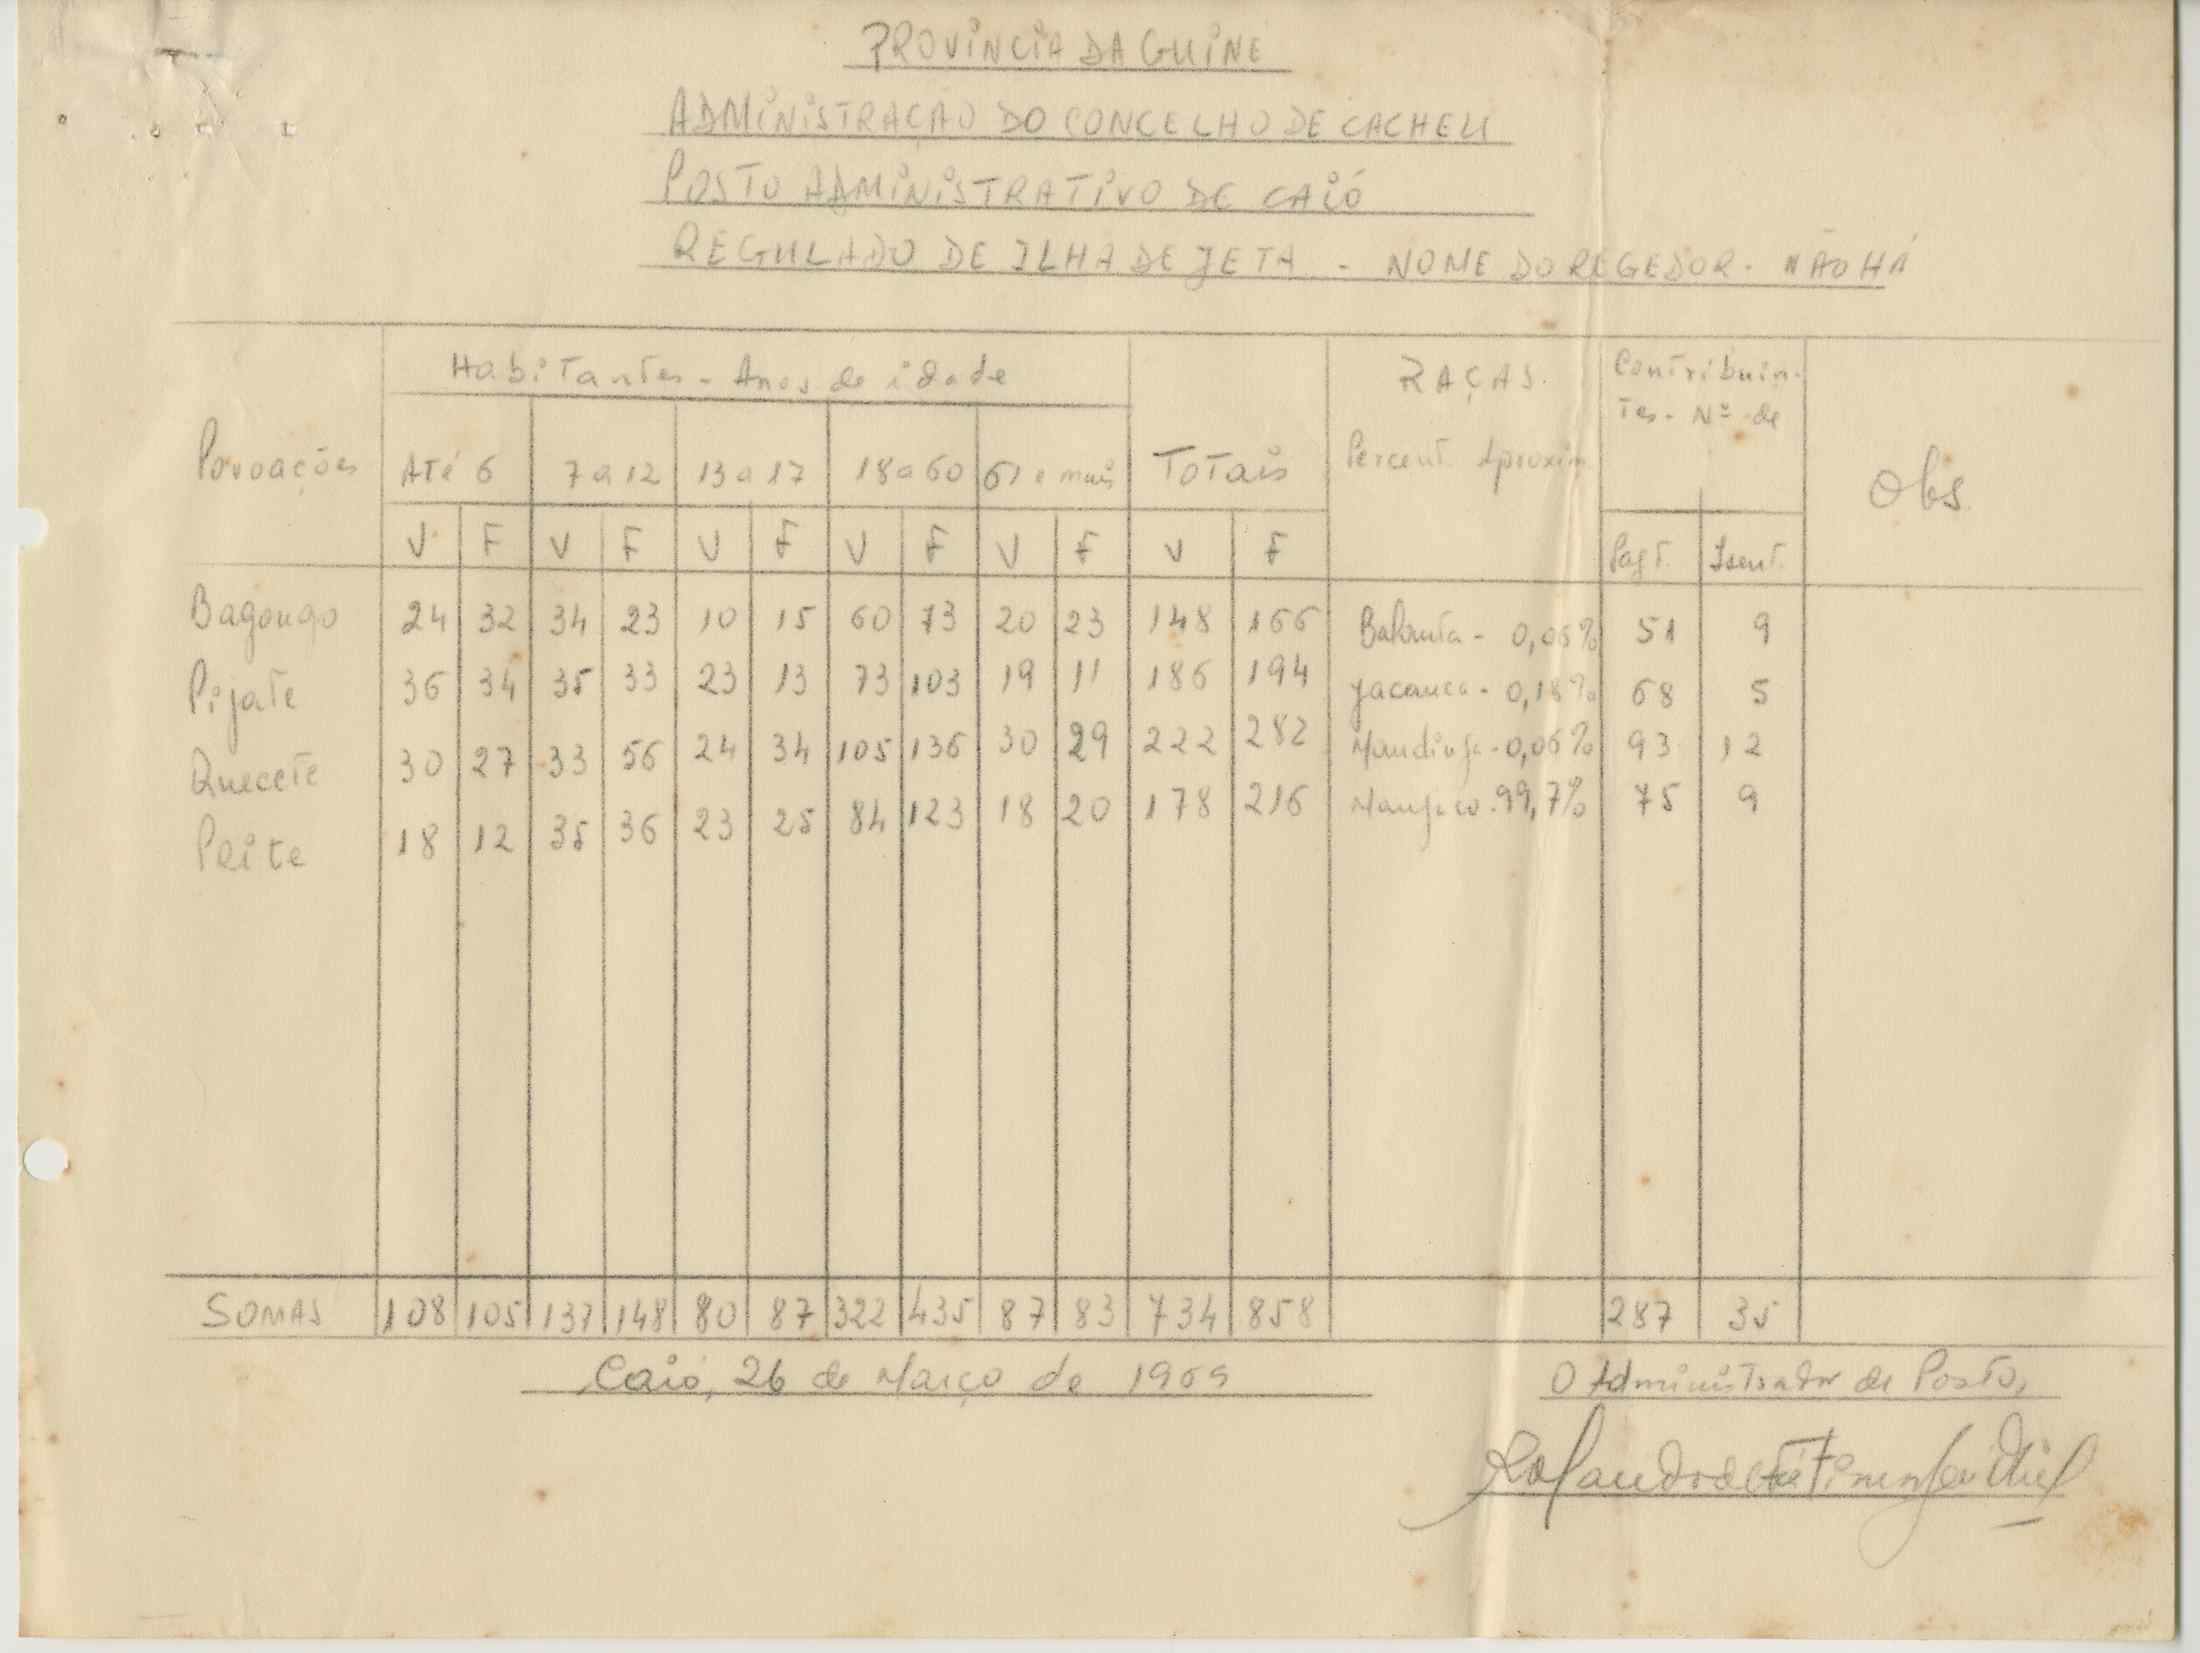 PROVINCIA DA GUINE
ADMINISTRAÇÃO DO CONCELHO DE CACHEU
POSTO ADMINISTRATIVO DE CAIÓ
REGULADO DE ILHA DE JETA - NOME DO REGEDOR - NÃO HÁ
Povoações Habitantes - Anos de idade Totais RAÇAS. Percent. Aproxim. Contribuin-
tes - Nº de Obs
Até 6 7 a 12 13 a 17 18 a 60 61 e mais
V F V F V F V F V F V F Pagt. Isent.
Bagongo 24 32 34 23 10 15 60 73 20 23 148 166 Balanta - 0,06% 51 9
Pijate 36 34 35 33 23 13 73 103 19 11 186 194 Jacanca - 0,18% 68 5
Quecete 30 27 33 56 24 34 105 136 30 29 222 282 Mandinga - 0,06% 93 12
Peite 18 12 35 36 23 25 84 123 18 20 178 216 Manjaco - 99,7% 75 9
SOMAS 108 105 137 148 80 87 322 435 87 83 734 858 287 35
Caió, 26 de Março de 1969
O Administrador de Posto,